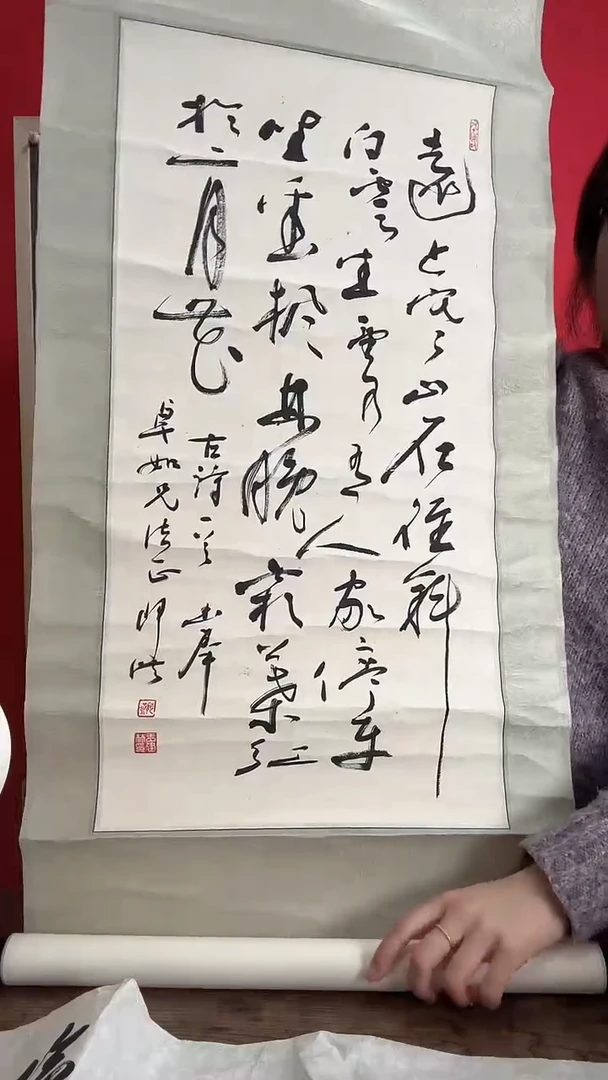 遠上寒山石徑斜
白雲生處有人家停車
坐愛楓林晚霜葉紅
於二月花
古詩一首
卓如兄法正